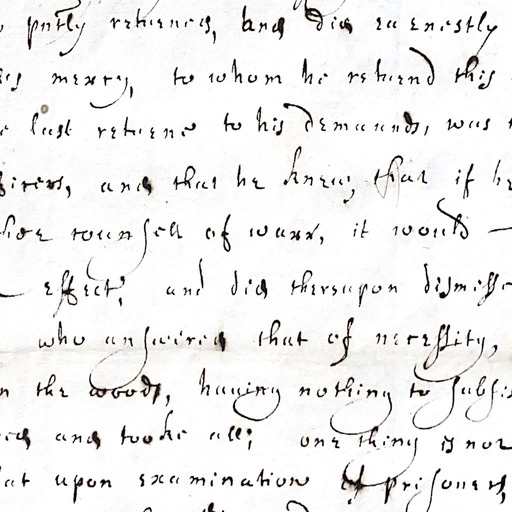 pntly returned, and did earnestly
mercy, to whom he returnd this
last returne to his demaunds, was
and that he knew, that if he
counsell of warr, it would
effect; and did thereupon dismesse
who answered that of necessity,
the woods, having nothing to subsis
and tooke all; one thing is not
at upon examination of prisoners,